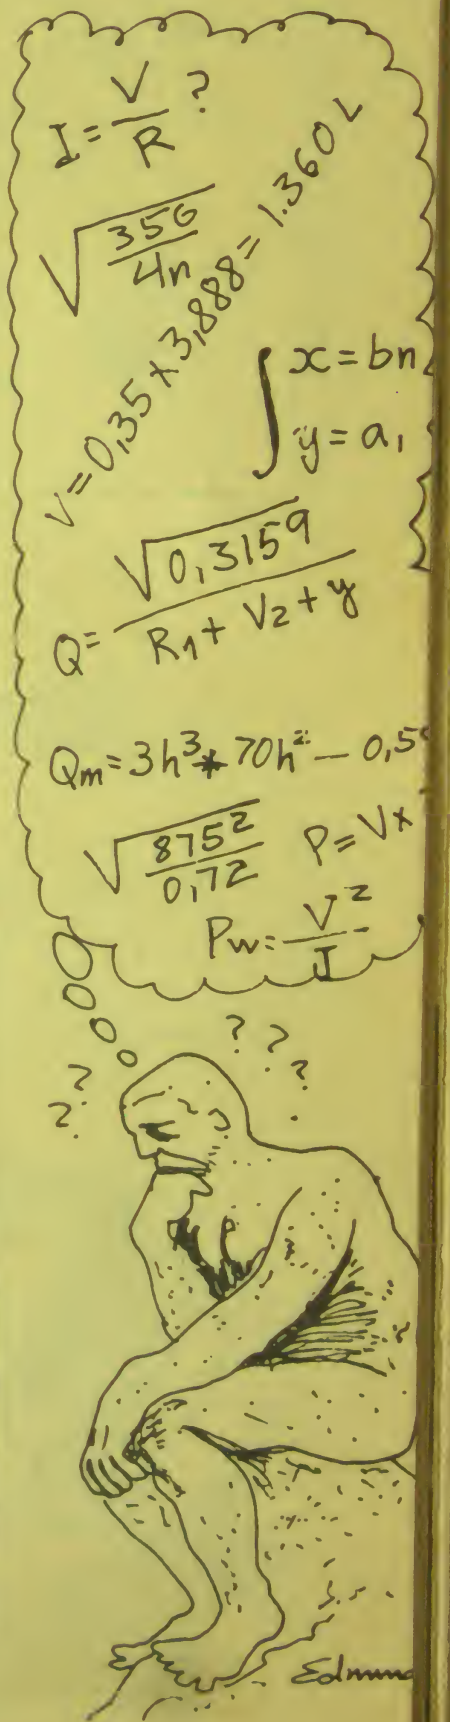 I = V/R ?
√(356/4n)
V = 0,35 x 3,888 = 1.360 L
∫ x = bn
y = a₁
Q = √0,3159 / R₁ + V₂ + y
Qm = 3h³ * 70h² — 0,5
√(875²/0,72)
P = Vx
Pw = V²/I
? ? ?
? ?